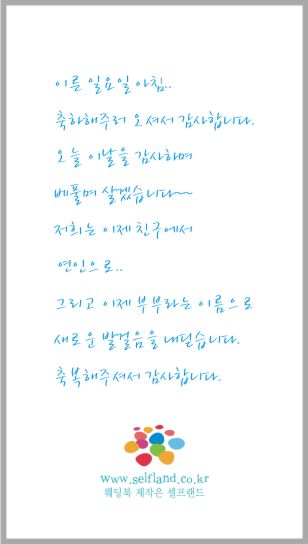 이른 일요일 아침..
축하해주러 오셔서 감사합니다.
오늘 이날을 감사하며
베풀며 살겠습니다~~
저희는 이제 친구에서
연인으로..
그리고 이제 부부라는 이름으로
새로운 발걸음을 내딛습니다.
축복해주셔서 감사합니다.
www.selfland.co.kr
웨딩북 제작은 셀프랜드